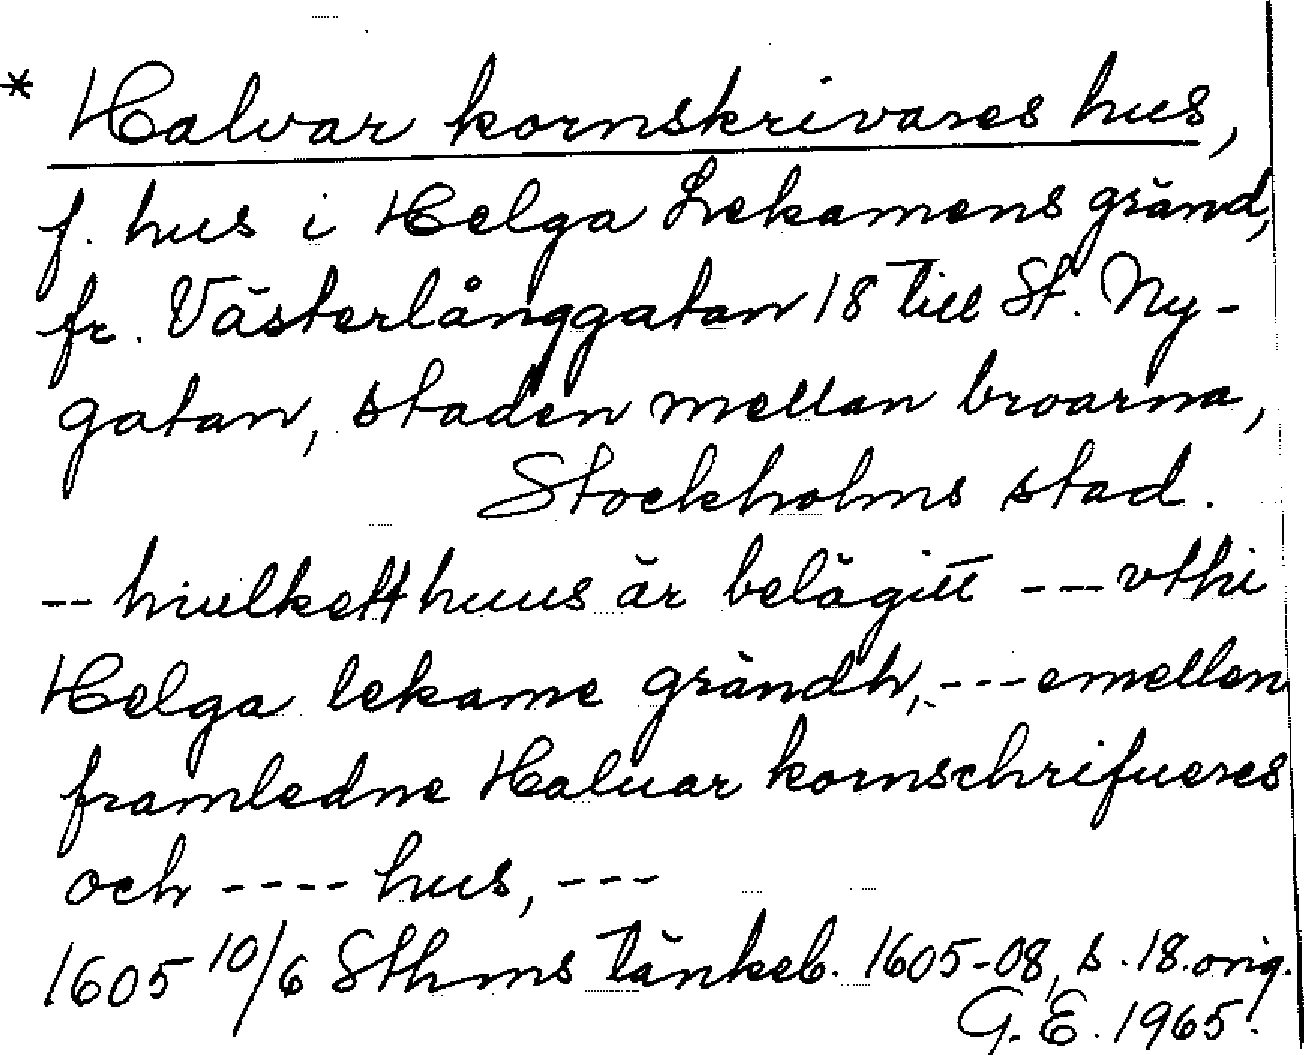 * Halvar kornskrivares hus,
f. hus i Helga Lekamens gränd,
fr. Västerlånggatan 18 till St. Ny-
gatan, staden mellan broarna,
Stockholms stad.
-- hwilkett huus är belägitt --- vthi
Helga lekame grändh, --- emellen
framledne Haluar kornschrifueres
och ---- hus, ---
1605 10/6 Sthms tänkeb. 1605-08, s. 18. orig.
G. E. 1965.